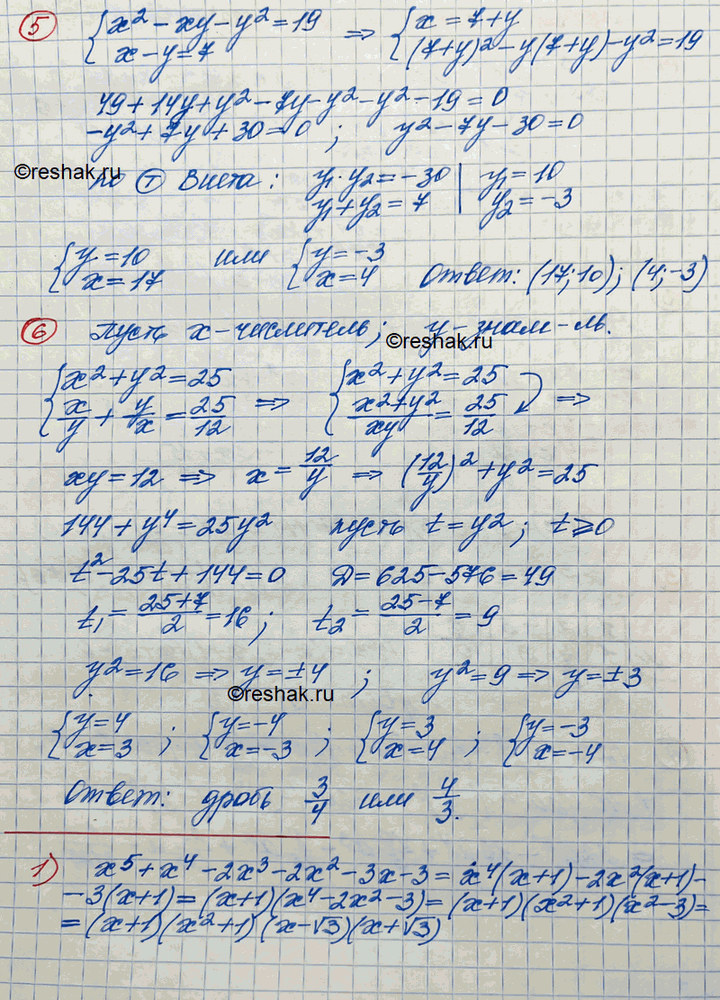 5 { x² - xy - y² = 19 ⇒ { x = 7 + y
x - y = 7 (7+y)² - y(7+y) - y² = 19
49 + 14y + y² - 7y - y² - y² - 19 = 0
-y² + 7y + 30 = 0 ; y² - 7y - 30 = 0
©reshak.ru
По Т Виета: y₁·y₂ = -30 | y₁ = 10
y₁ + y₂ = 7 | y₂ = -3
{ y = 10 или { y = -3
x = 17 x = 4 Ответ: (17; 10); (4; -3)
6 Пусть x - числитель; y - знам-ль.
©reshak.ru
{ x² + y² = 25 ⇒ { x² + y² = 25 ⇒
x/y + y/x = 25/12 (x² + y²)/xy = 25/12
xy = 12 ⇒ x = 12/y ⇒ (12/y)² + y² = 25
144 + y⁴ = 25y² Пусть t = y² ; t ⩾ 0
t² - 25t + 144 = 0 Д = 625 - 576 = 49
t₁ = (25+7)/2 = 16 ; t₂ = (25-7)/2 = 9
y² = 16 ⇒ y = ±4 ; y² = 9 ⇒ y = ±3
©reshak.ru
{ y = 4 ; { y = -4 ; { y = 3 ; { y = -3
x = 3 x = -3 x = 4 x = -4
Ответ: дробь 3/4 или 4/3.
1) x⁵ + x⁴ - 2x³ - 2x² - 3x - 3 = x⁴(x+1) - 2x²(x+1) -
- 3(x+1) = (x+1)(x⁴ - 2x² - 3) = (x+1)(x²+1)(x²-3) =
= (x+1)(x²+1)(x-√3)(x+√3)